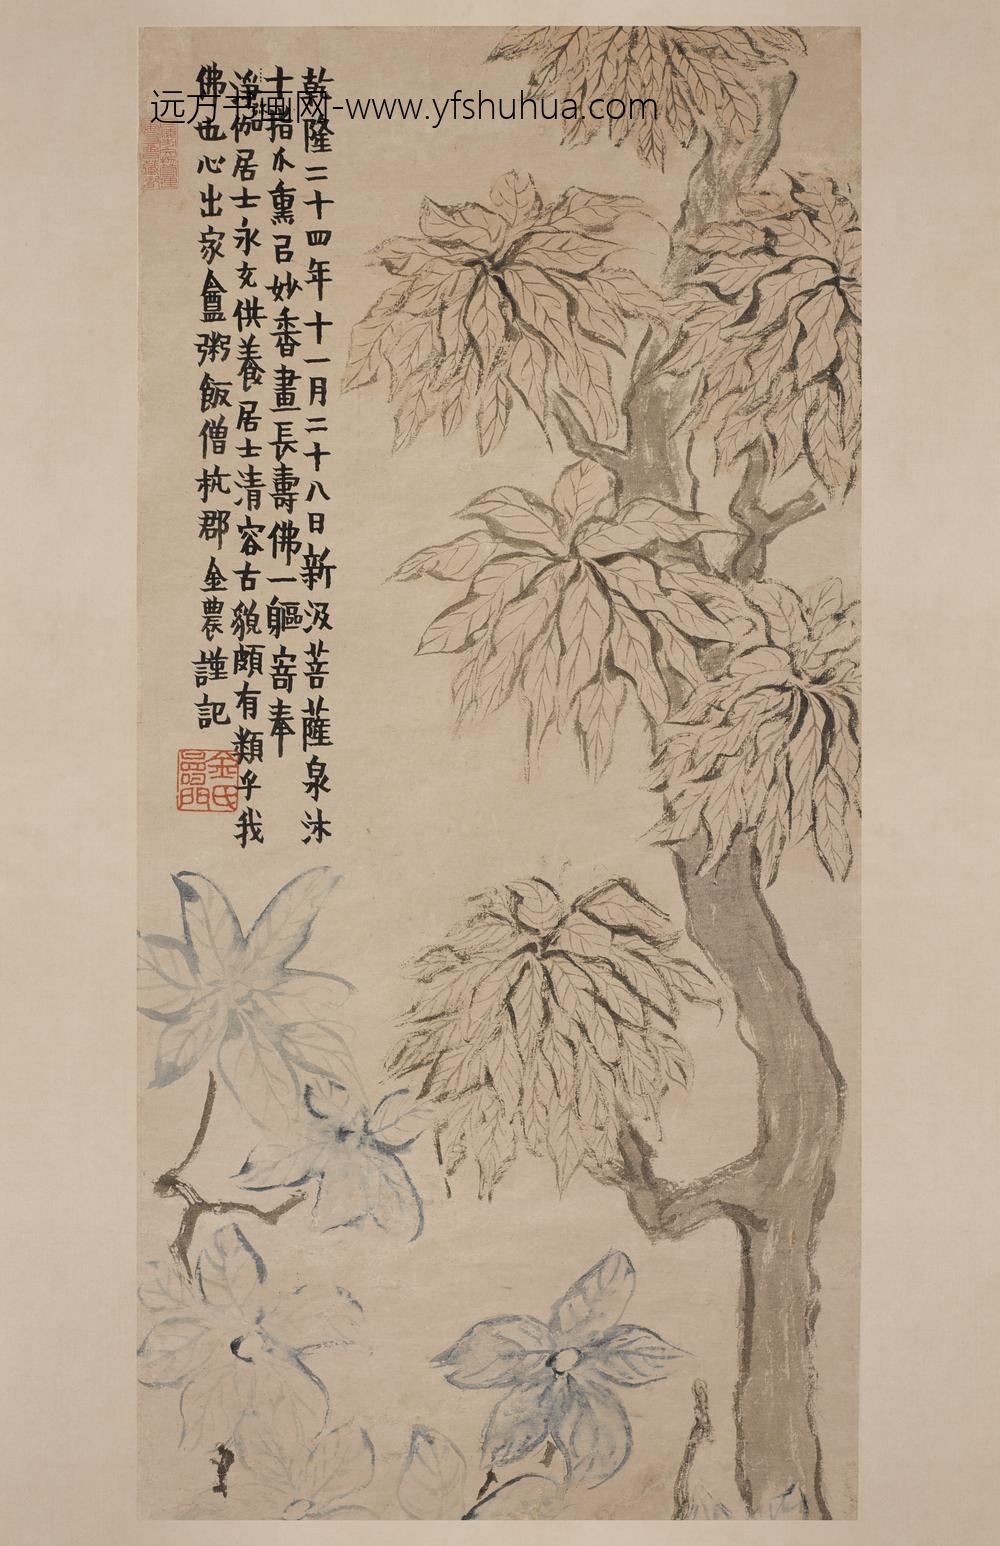 远方书画网-www.yfshuhua.com
乾隆二十四年十一月二十八日新汲菩薩泉沐
十指爪熏已妙香畫長壽佛一軀寄奉
淨伽居士永充供養居士清容古貌頗有類乎我
佛也心出家盦粥飯僧杭郡金農謹記
金氏